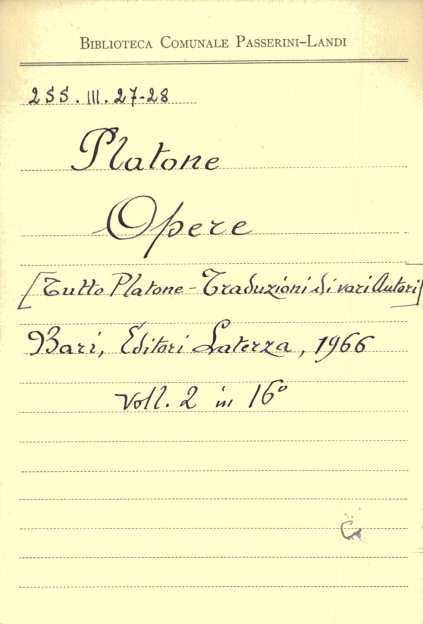 BIBLIOTECA COMUNALE PASSERINI-LANDI
255.III.27-28
Platone
Opere
[Tutto Platone - Traduzioni di vari Autori]
Bari, Editori Laterza, 1966
Voll. 2 in 16°